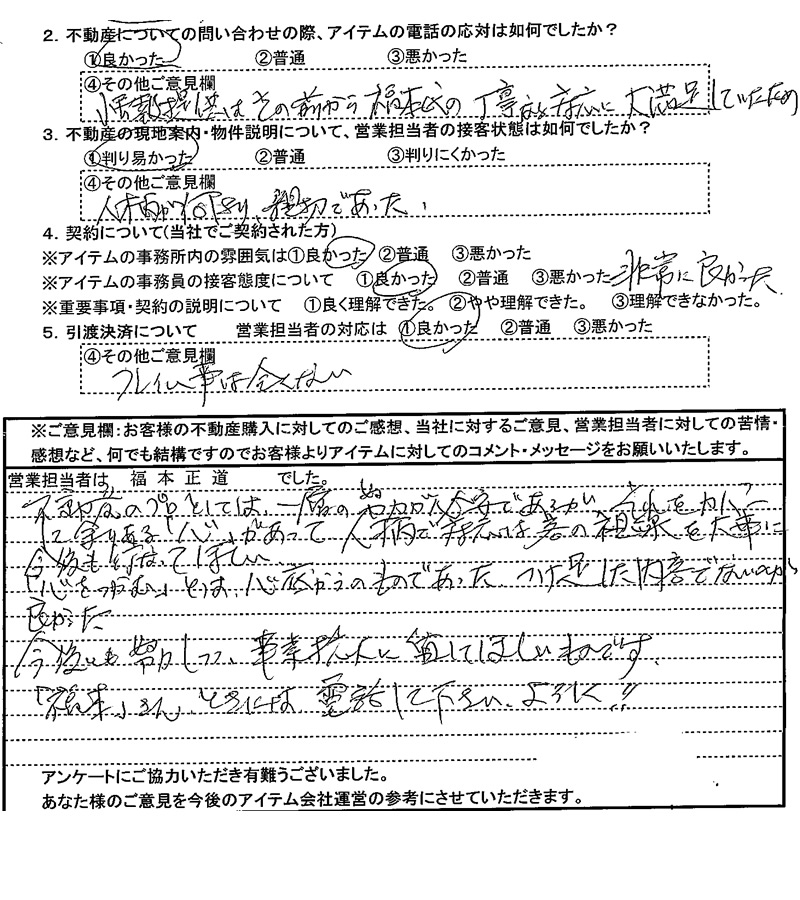 2. 不動産についての問い合わせの際、アイテムの電話の応対は如何でしたか?
①良かった ②普通 ③悪かった
④その他ご意見欄
情報提供はその前から福本氏の丁寧な対応に大満足していたため
3. 不動産の現地案内・物件説明について、営業担当者の接客状態は如何でしたか?
①判り易かった ②普通 ③判りにくかった
④その他ご意見欄
人柄が何より、親切であった、
4. 契約について(当社でご契約された方)
※アイテムの事務所内の雰囲気は①良かった ②普通 ③悪かった
※アイテムの事務員の接客態度について ①良かった ②普通 ③悪かった 非常に良かった
※重要事項・契約の説明について ①良く理解できた。 ②やや理解できた。 ③理解できなかった。
5. 引渡決済について 営業担当者の対応は ①良かった ②普通 ③悪かった
④その他ご意見欄
事は全くない
※ご意見欄:お客様の不動産購入に対してのご感想、当社に対するご意見、営業担当者に対しての苦情・
感想など、何でも結構ですのでお客様よりアイテムに対してのコメント・メッセージをお願いいたします。
営業担当者は 福本正道 でした。
不動産のプロとしては、一層の が必要であるが、それをカバー
して余りある「心」があって人柄で対応は 目線を大事に
今後も 行ってほしい
「心をつかむ」とは、心底からのものであった つけ足した内容でないから
良かった
今後とも努力しつつ、事業拡大に 直してほしいものです。
「福本」さん、ときには電話して下さい、よろしく!!
アンケートにご協力いただき有難うございました。
あなた様のご意見を今後のアイテム会社運営の参考にさせていただきます。